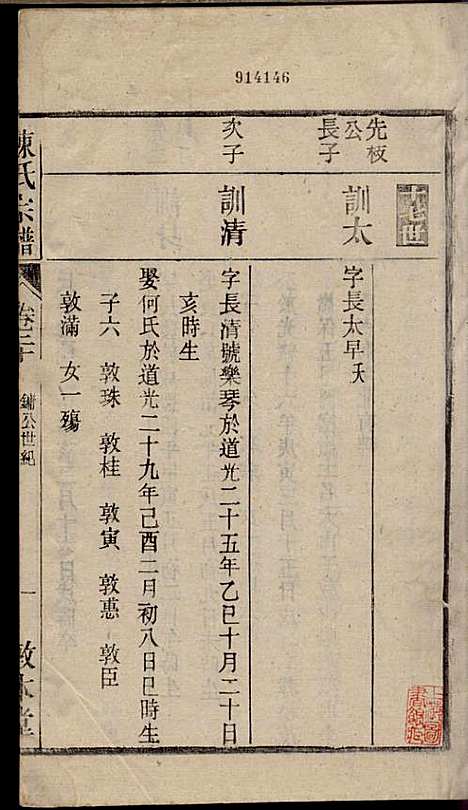 914146
先枝
公
長子
訓太
字長太早夭
次子
訓清
字長清號樂琴於道光二十五年乙巳十月二十日
亥時生
娶何氏於道光二十九年己酉二月初八日巳時生
子六 敦珠 敦桂 敦寅 敦蕙 敦臣
敦滿 女一殤
陳氏宗譜
卷二十
鏞公世紀
一
敦本堂